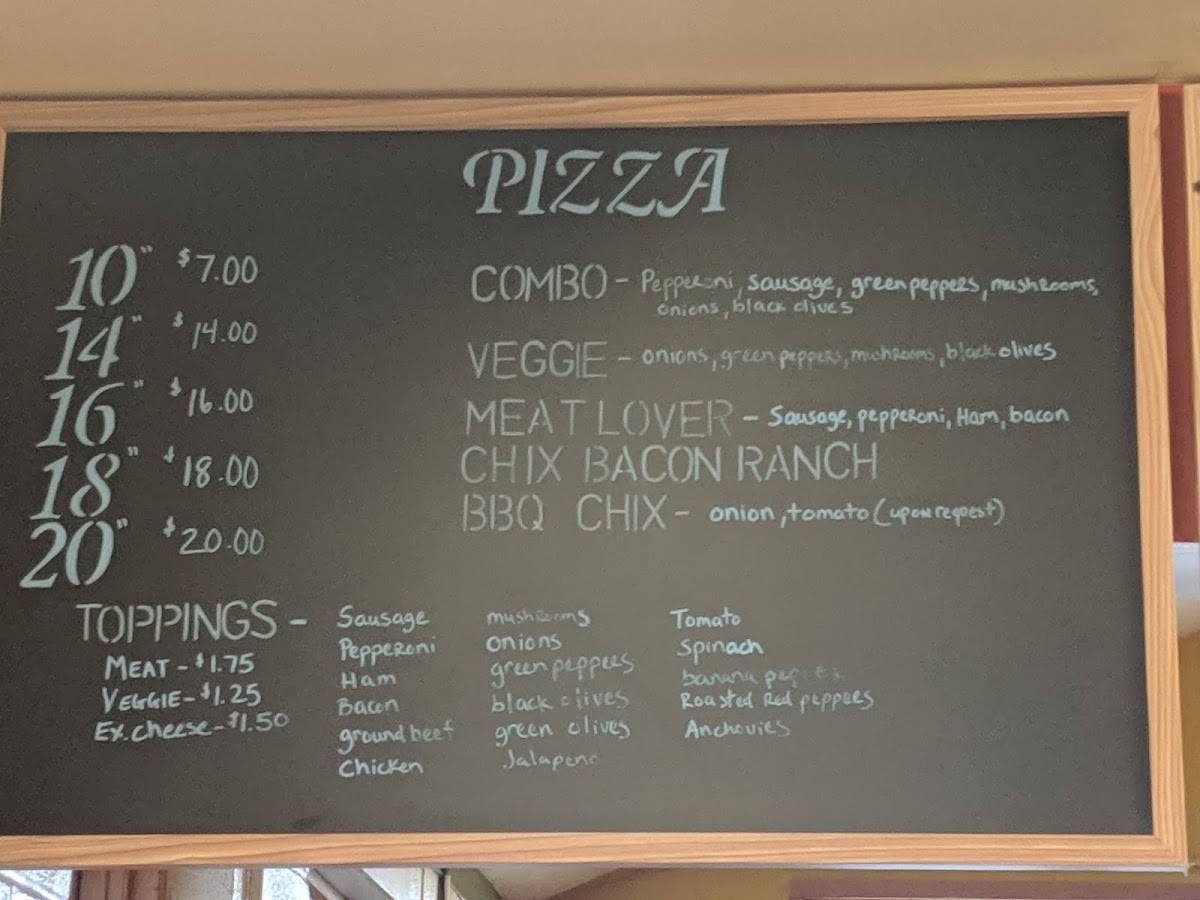 PIZZA
10" $7.00
14" $14.00
16" $16.00
18" $18.00
20" $20.00
COMBO - Pepperoni, sausage, green peppers, mushrooms,
onions, black olives
VEGGIE - onions, green peppers, mushrooms, black olives
MEAT LOVER - Sausage, pepperoni, Ham, bacon
CHIX BACON RANCH
BBQ CHIX - onion, tomato (upon request)
TOPPINGS -
MEAT - $1.75
VEGGIE - $1.25
Ex. cheese - $1.50
Sausage
Pepperoni
Ham
Bacon
ground beef
Chicken
mushrooms
onions
green peppers
black olives
green olives
Jalapeno
Tomato
Spinach
banana
Roasted Red peppers
Anchovies